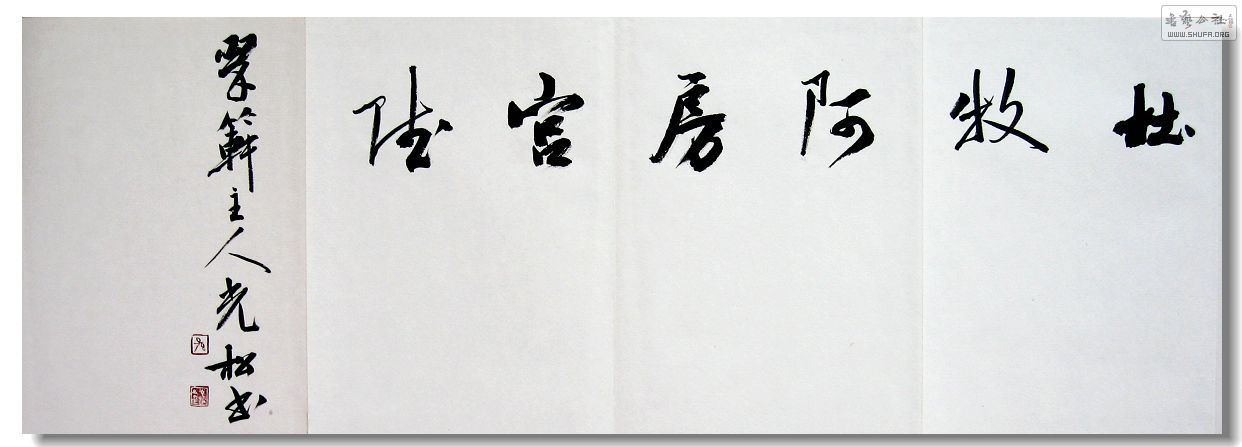 书艺公社
WWW.SHUFA.ORG
杜牧阿房宫赋
主人光松书